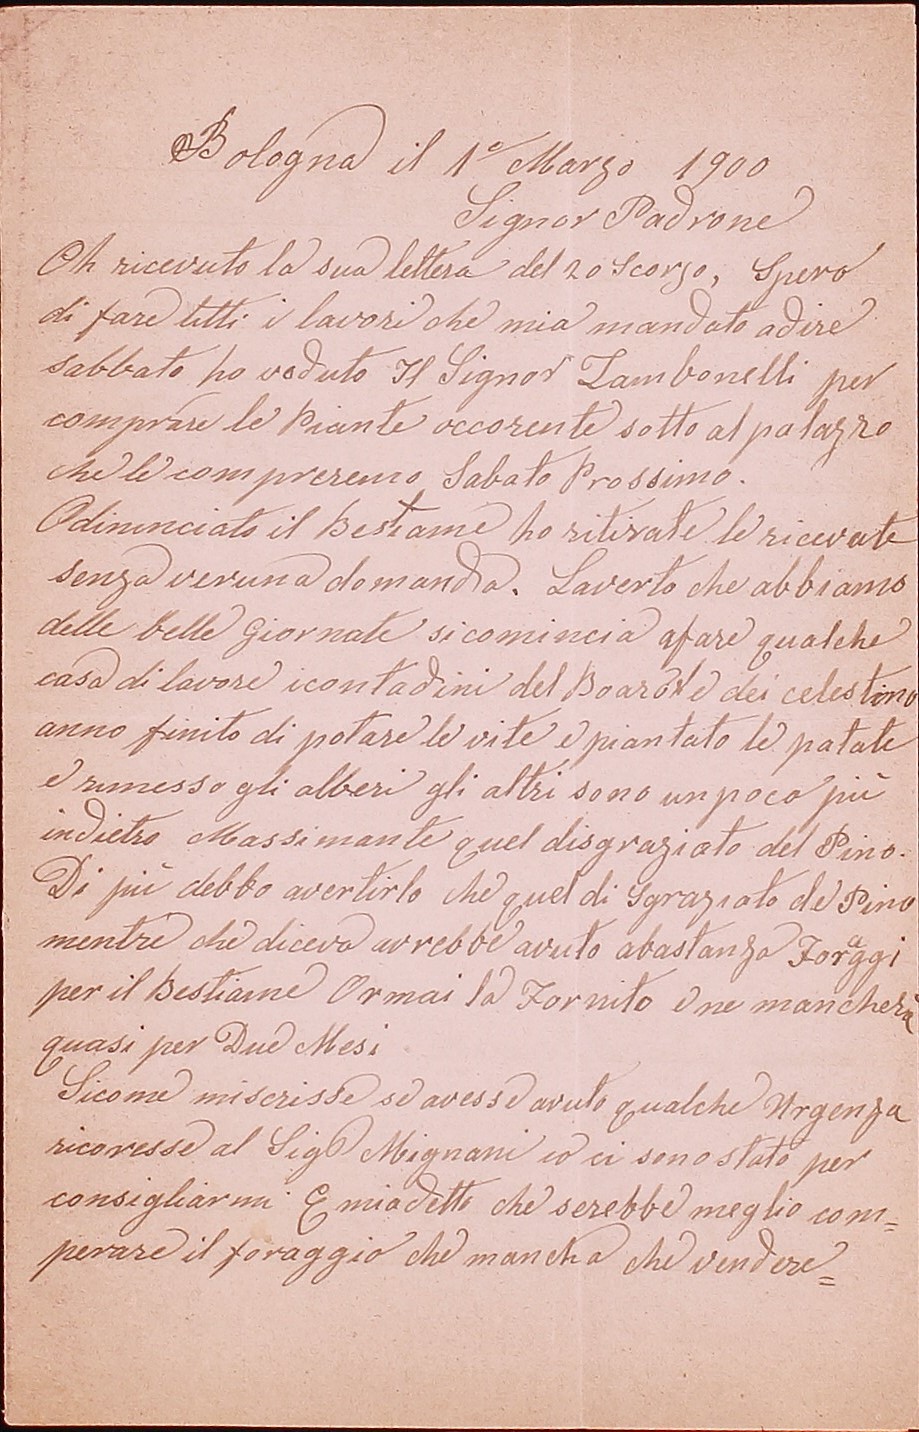 Bologna il 1° Marzo 1900
Signor Padrone
Oh ricevuto la sua lettera del 20 Scorso, Spero
di fare titti i lavori che mia mandato adire
sabbato ho veduto Il Signor Zambonelli per
comprare le Piante occorente sotto al palazzo
che le compreremo Sabato Prossimo.
Odininciato il Bestiame ho ritirate le ricevute
senza veruna domanda. Laverto che abbiamo
delle belle Giornate si comincia afare qualche
casa di lavore icontadini del Boaro e dei celestino
anno finito di potare le vite e piantato le patate
e rimesso gli alberi gli altri sono un poco più
indietro Massimante quel disgraziato del Pino.
Di più debbo avertirlo che quel di Sgraziato de Pino
mentre che diceva avrebbe avuto abastanza Foraggi
per il Bestiame Ormai la Fornito e ne mancherà
quasi per Due Mesi
Sicome miscrisse se avesse avuto qualche Urgenza
ricoresse al Sig Mignani io ci sono stato per
consigliarmi E miadetto che serebbe meglio com=
perare il foraggio che mancha che vendere=